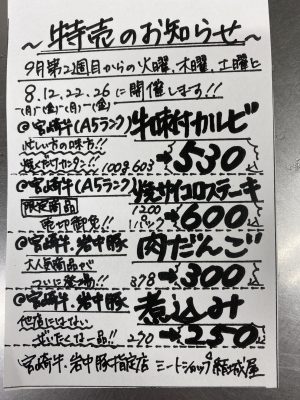 ～特売のお知らせ～
9月第2週目からの火曜、木曜、土曜と
8.12.22.26に開催します!!
(月)(金)(月)(金)
@宮崎牛(A5ランク)牛味付カルビ
忙しい方の味方!!
焼くだけカンタン!! 100g 603→530
@宮崎牛(A5ランク)焼サイコロステーキ
限定商品
売切御免!! 1200 1パック→600
@宮崎牛、岩中豚 肉だんご
大人気商品が
ついに登場!! 378→300
@宮崎牛、岩中豚 煮込み
他店にはない
ぜいたくな一品!! 270→250
宮崎牛、岩中豚指定店 ミートショップ結城屋